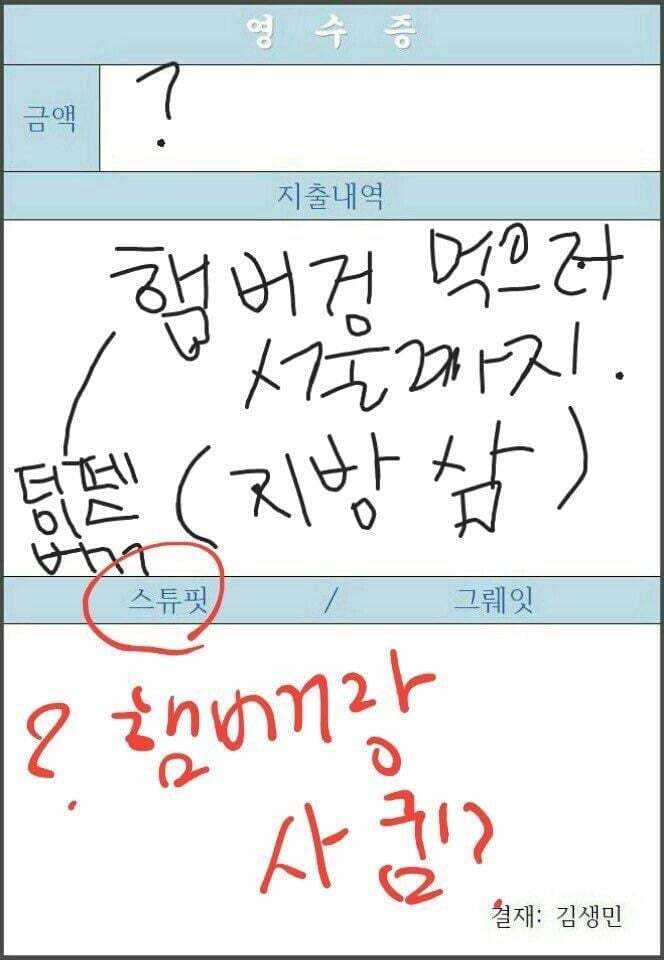 영수증
금액 ?
지출내역
햄버겅 먹으러
서울까지.
(지방 삶)
스튜핏 / 그뤠잇
? 햄버거랑
사귐?
결재: 김생민